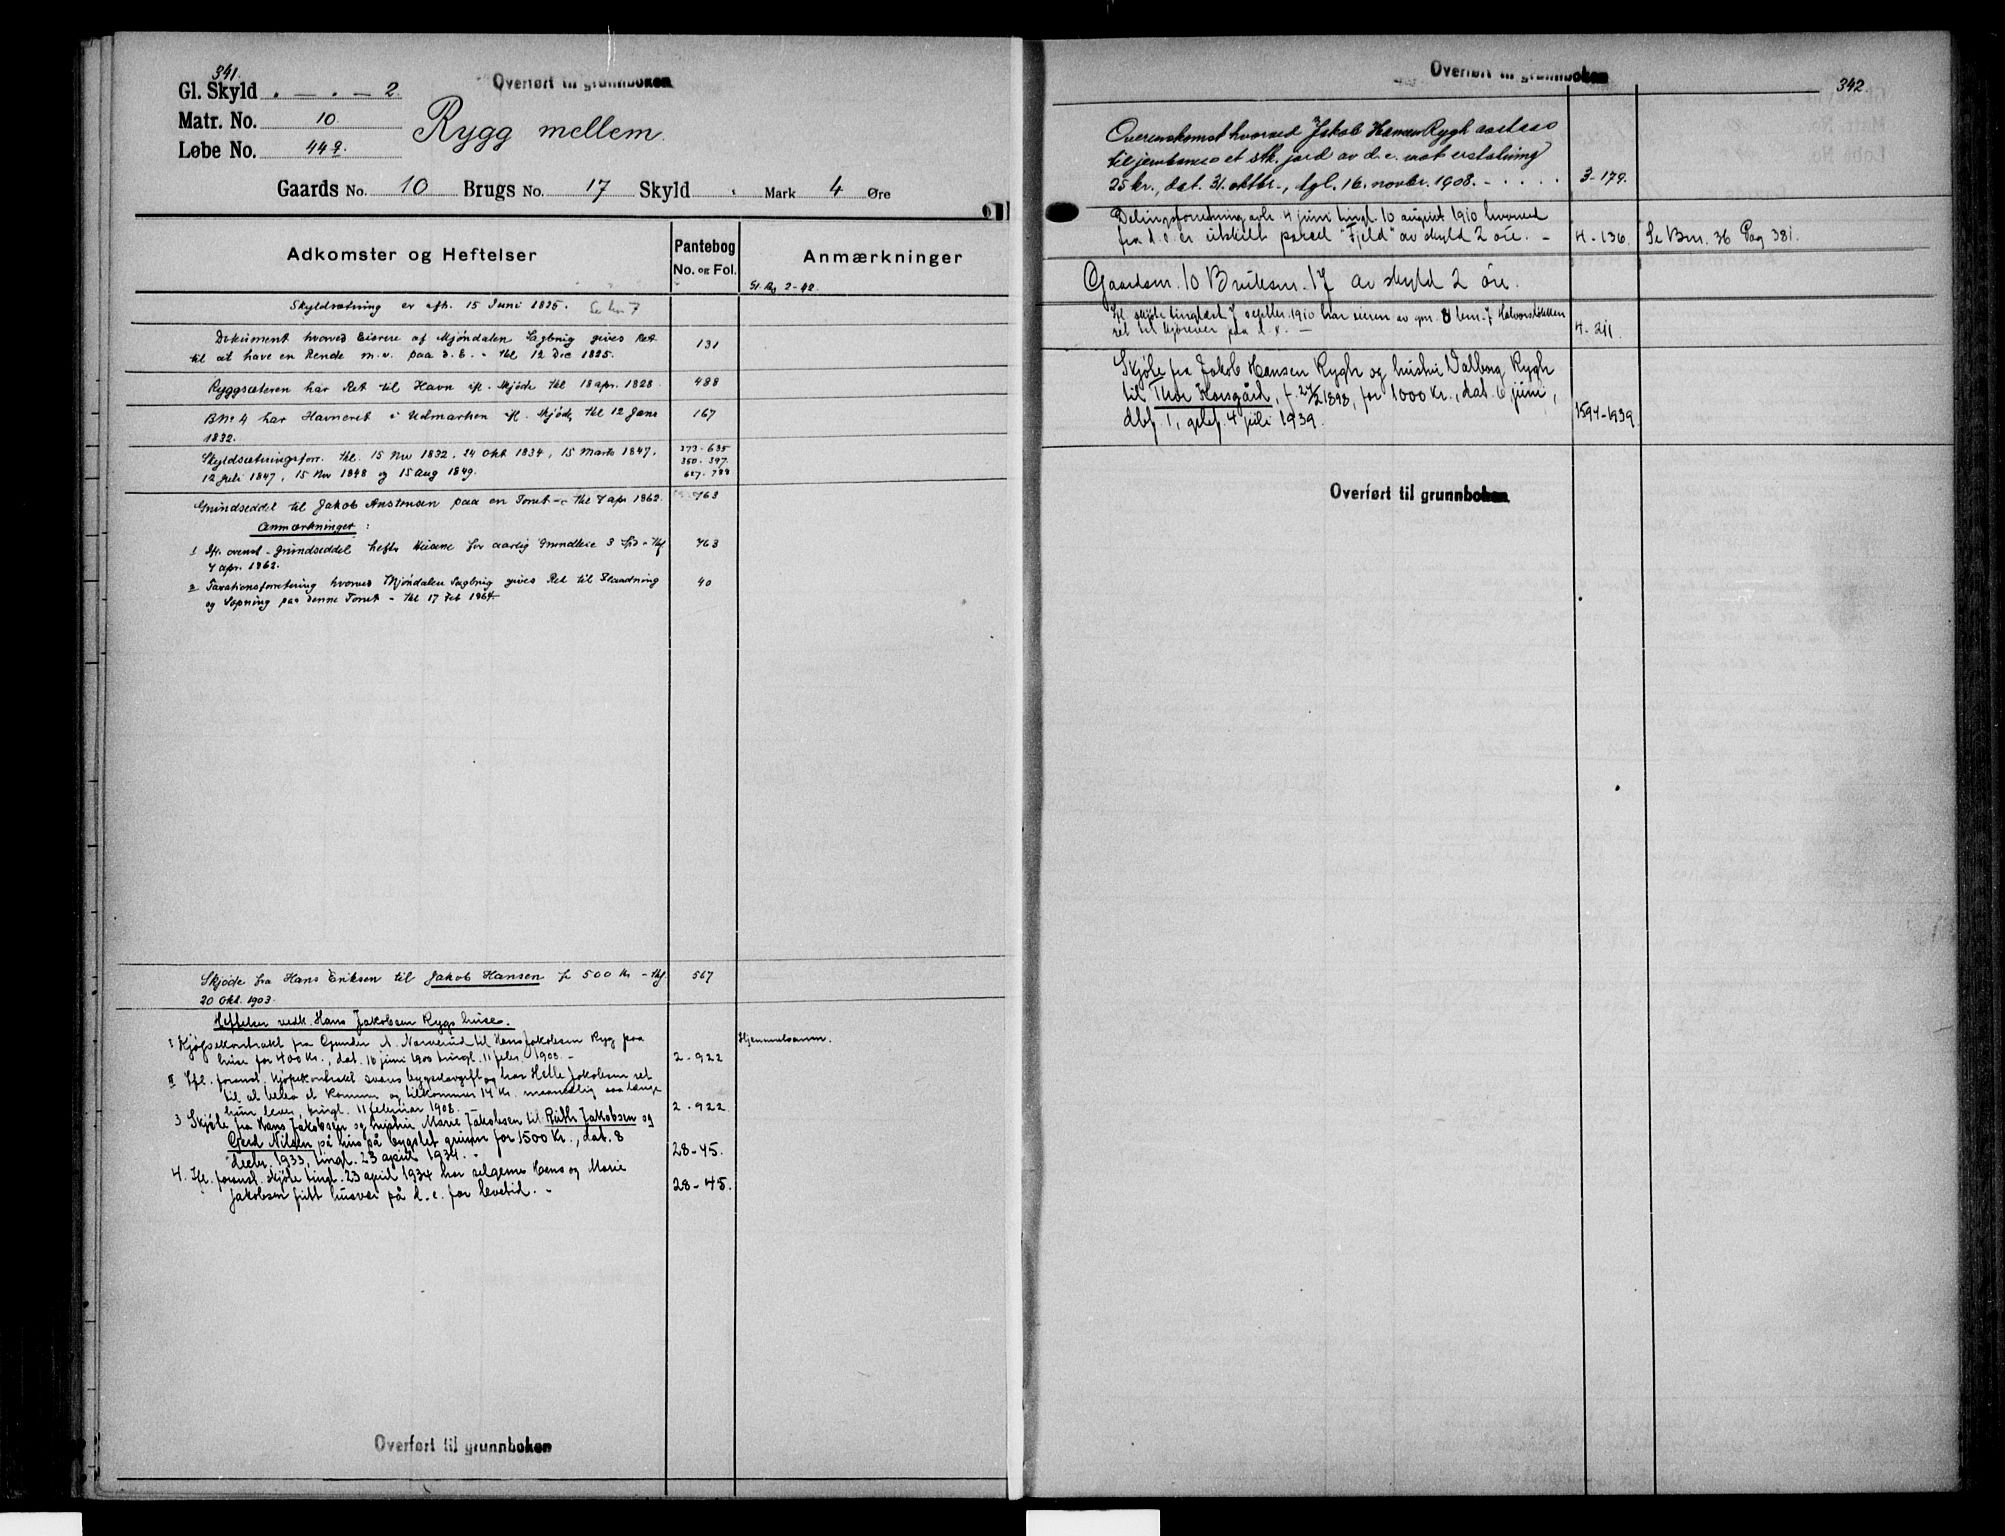 341.
Overført til grunnboken
Gl. Skyld . — . — 2.
Matr. No. 10.
Løbe No. 44 q.
Rygg mellem.
Gaards No. 10 Brugs No. 17 Skyld Mark 4 Øre
Adkomster og Heftelser
Pantebog
No. og Fol.
Anmærkninger
Gl. Rg 2-42.
Skyldsætning er afh. 15 Juni 1825. Se bn 7
Dokument hvorved Eierere af Mjøndalen Sagbrug gives Ret 131
til at have en Rende m.v. paa d.E. - thl 12 Dec 1825.
Ryggsæteren har Ret til Havn ifl. Skjøde thl 18 apr. 1828. 488
B№ 4 har Havneret i Udmarken ifl. Skjøde thl 12 Jan 167
1832.
Skyldsætningsforr. thl. 15 Nov 1832, 24 Okt 1834, 15 Marts 1847, 373-635
12 Juli 1847, 15 Nov 1848 og 15 Aug 1849. 350-397.
627-788
Grundseddel til Jakob Anstensen paa en Tomt - thl 7 apr 1862. 763
Anmærkninger:
1 Ifl. ovenst. Grundseddel hefte Husene for aarlig Grundleie 3 Spd - thl 763
7 apr. 1862.
2 Taxationsforretning hvorved Mjøndalen Sagbrug gives Ret til 40
og paa denne Tomt - thl 17 Feb 1864
Skjøde fra Hans Eriksen til Jakob Hansen for 500 Kr - thl 567
20 Okt. 1903.
Heftelser vedk. Hans Jakobsen Rygs huse.
1 Kjøpekontrakt fra Gunder A. Narverud til Hans Jakobsen Ryg paa Hjemmelsmann.
huse for 400 Kr., dat. 16 juni 1900 tingl. 11 febr. 1908. - 2-922
II Ifl. foranst. kjøpekontrakt svares bygselavgift og har Helle Jakobsen ret
til at bebo et kammer og tilkommer 14 Kr. maanedlig saa længe
hun lever, tingl. 11 februar 1908. 2-922
3 Skjøte fra Hans Jakobsen og hustru Marie Jakobsen til Ruth Jakobsen og
Gerd Nilsen på hus på bygslet grunn for 1500 Kr., dat. 8
decbr. 1933, tingl. 23 april 1934. - 28-45.
4. Ifl. foranst. skjøte tingl. 23 april 1934 har selgerne Hans og Marie
Jakobsen fritt husvær på d.e. for levetid. - 28-45.
Overført til grunnboken
Overført til grunnboken
342.
Overenskomst hvorved Jakob Hansen Rygh avstaar
til jernbanen et stk. jord av d.e. mot erstatning
25 kr., dat. 31. oktbr., tgl. 16. novbr. 1908. - . . . . 3-179.
Delingsforretning avh. 4 juni tingl. 10 august 1910 hvorved
fra d.e. er utskilt parcel "Fjeld" av skyld 2 øre. - 4-136. Se Bnr. 36 Pag 381.
Gaardsnr. 10 Bruksnr. 17 av skyld 2 øre.
Ifl. skjøte tinglæst 7 septbr. 1910 har eieren av gnr. 8 bnr. 7 Halvorsløkken
ret til kjørevei paa d.e. - 4-211.
Skjøte fra Jakob Hansen Rygh og hustru Valborg Rygh
til Thor Korsgård, f. 27/2 1898, for 1000 kr., dat. 6 juni,
dbf. 1, gebf. 4 juli 1939. 1594-1939
Overført til grunnboken